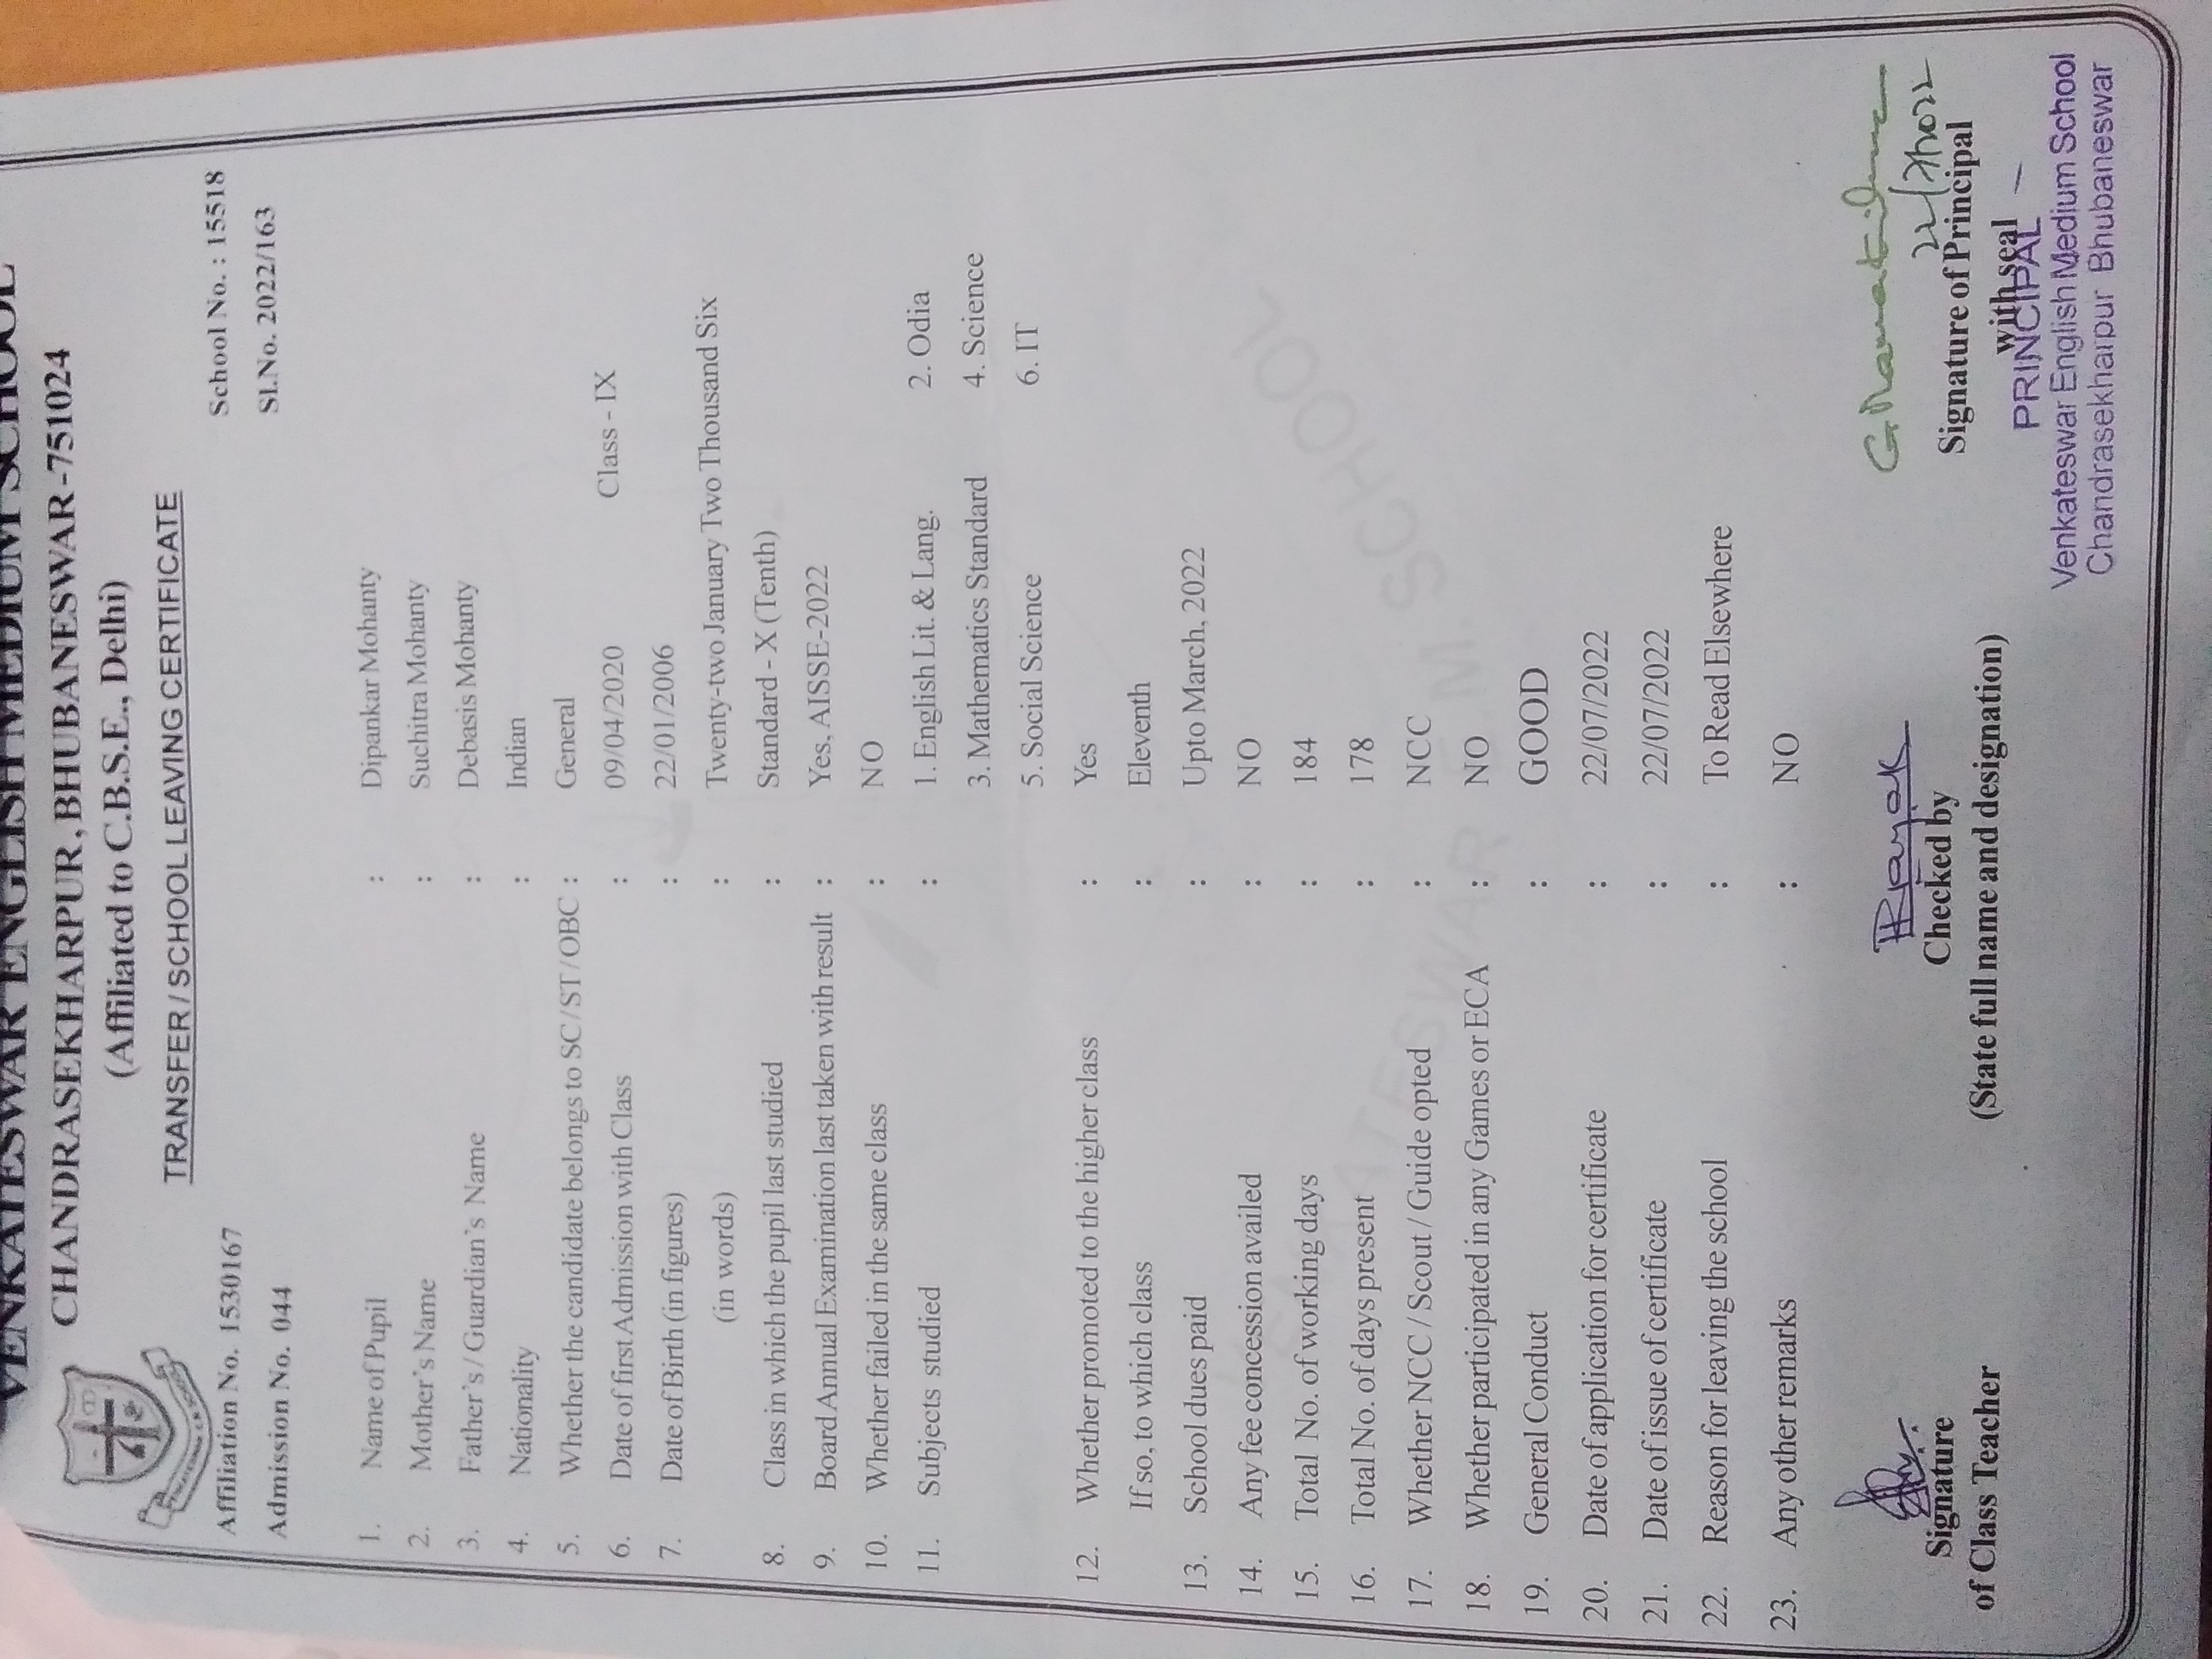 VENKATESWAR ENGLISH MEDIUM SCHOOL
CHANDRASEKHARPUR, BHUBANESWAR-751024
(Affiliated to C.B.S.E., Delhi)
TRANSFER / SCHOOL LEAVING CERTIFICATE
Affiliation No. 1530167 School No. : 15518
Admission No. 044 Sl.No. 2022/163
1. Name of Pupil : Dipankar Mohanty
2. Mother's Name : Suchitra Mohanty
3. Father's / Guardian's Name : Debasis Mohanty
4. Nationality : Indian
5. Whether the candidate belongs to SC/ST/OBC : General
6. Date of first Admission with Class : 09/04/2020 Class - IX
7. Date of Birth (in figures) : 22/01/2006
(in words) : Twenty-two January Two Thousand Six
8. Class in which the pupil last studied : Standard - X (Tenth)
9. Board Annual Examination last taken with result : Yes, AISSE-2022
10. Whether failed in the same class : NO
11. Subjects studied : 1. English Lit. & Lang. 2. Odia
3. Mathematics Standard 4. Science
5. Social Science 6. IT
12. Whether promoted to the higher class : Yes
If so, to which class : Eleventh
13. School dues paid : Upto March, 2022
14. Any fee concession availed : NO
15. Total No. of working days : 184
16. Total No. of days present : 178
17. Whether NCC / Scout / Guide opted : NCC
18. Whether participated in any Games or ECA : NO
19. General Conduct : GOOD
20. Date of application for certificate : 22/07/2022
21. Date of issue of certificate : 22/07/2022
22. Reason for leaving the school : To Read Elsewhere
23. Any other remarks : NO
22/7/2022
Signature Checked by Signature of Principal
of Class Teacher (State full name and designation) with seal
PRINCIPAL
Venkateswar English Medium School
Chandrasekharpur Bhubaneswar